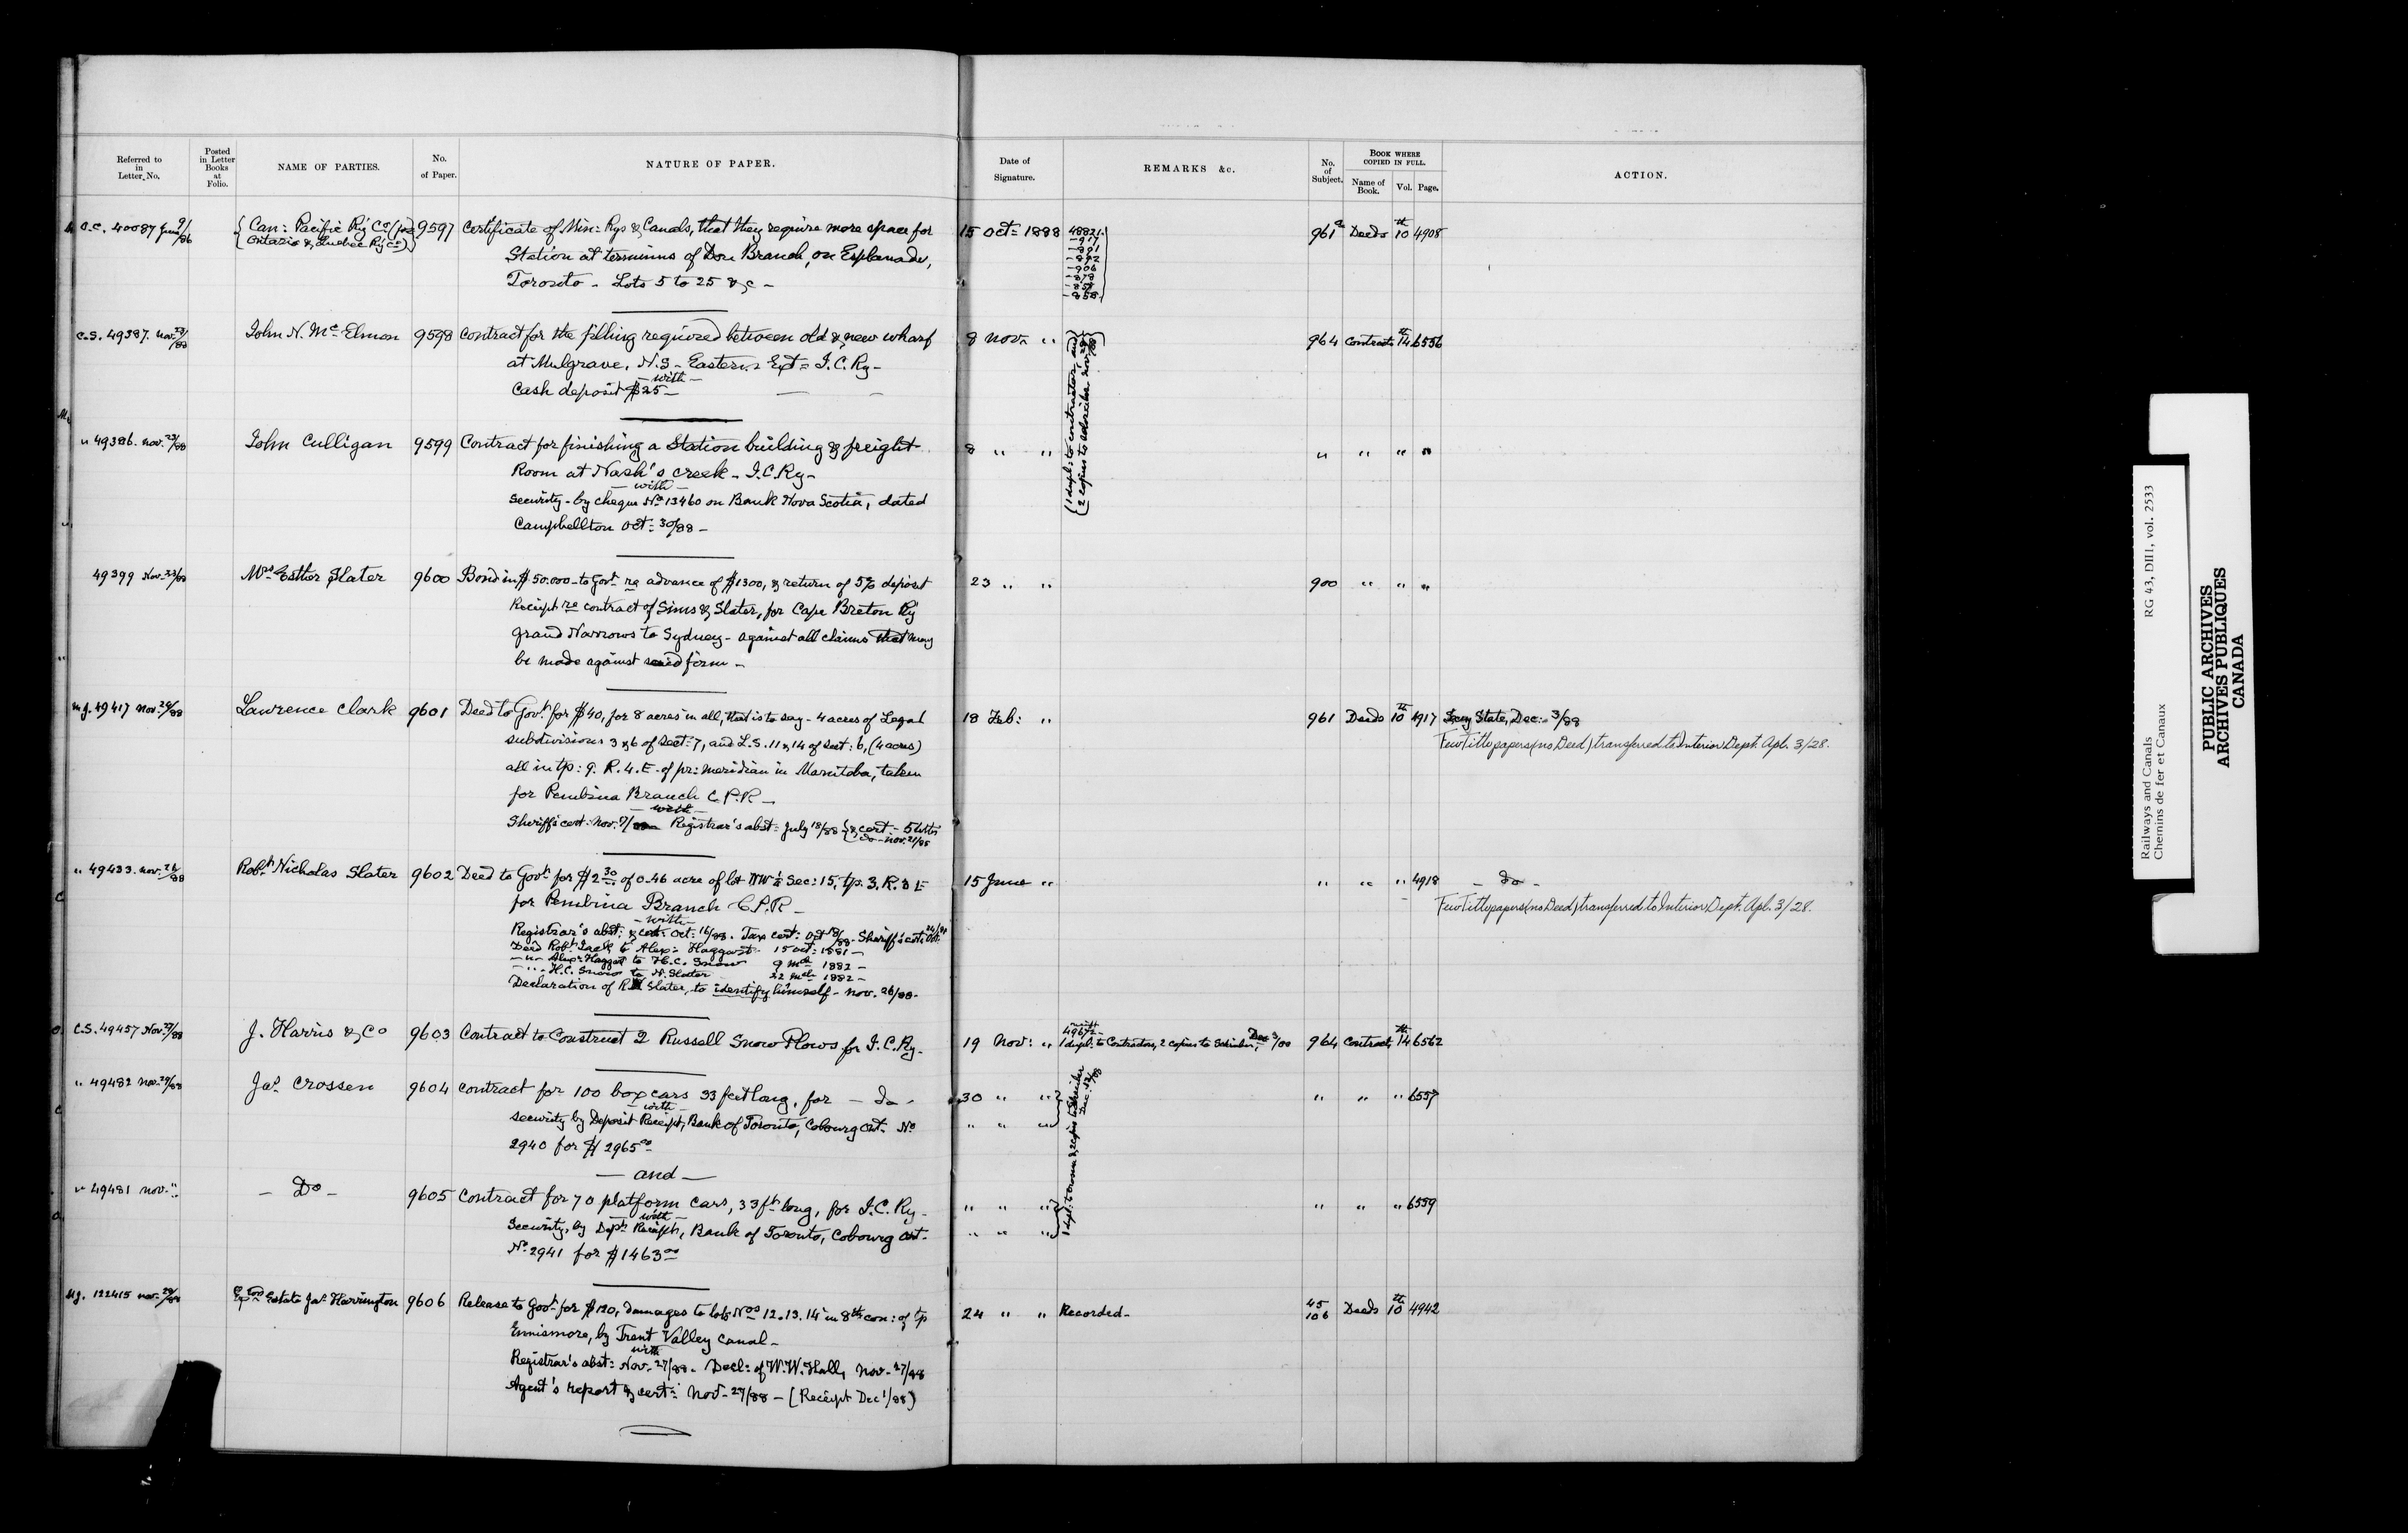 Referred to in Letter No.
Posted in Letter Books at Folio.
NAME OF PARTIES.
No. of Paper.
NATURE OF PAPER.
Date of Signature.
REMARKS &c.
No. of Subject.
BOOK WHERE COPIED IN FULL.
Name of Book.
Vol.
Page.
ACTION.
O.C. 40087 June 9/86 { Can: Pacific Ry Co (for 9597 Certificate of Min: Rys & Canals, that they require more space for 15 Oct: 1888 48821. 961a Deeds 10th 4908
{ Ontario & Quebec Ry Co)
-917
-891
-892
-906
-878
-857
-858.
Station at terminus of Don Branch, on Esplanade,
Toronto - Lots 5 to 25 &c -
C.S. 49387. Nov. 23/88 John N. Mc Elmon 9598 Contract for the filling required between old & new wharf 8 Nov. " 964 Contracts 14th 6556
at Mulgrave, N.S - Eastern Ext = I.C.Ry -
- with -
Cash deposit $25 -
(1 dupl: to contractor, and)
(2 copies to Schreiber Nov. 29/88)
" 49386. Nov. 23/88 John Culligan 9599 Contract for finishing a Station building & freight 8 " " " " " "
Room at Nash's creek - I.C.Ry -
- with -
Security - by cheque No 13460 on Bank Nova Scotia, dated
Campbellton Oct: 30/88 -
49399 Nov. 23/88 Mrs Esther Slater 9600 Bond in $50.000 - to Govt re advance of $1300, & return of 5% deposit 23 " " 900 " " "
Receipt re contract of Sims & Slater, for Cape Breton Ry
Grand Narrows to Sydney - against all claims that may
be made against said firm -
Mj. 49417 Nov. 24/88 Lawrence Clark 9601 Deed to Govt for $40, for 8 acres in all, that is to say - 4 acres of Legal 18 Feb: " 961 Deeds 10th 4917 Secy State, Dec: 3/88
subdivisions 3 & 6 of Sect: 7, and L.S. 11 & 14 of Sect: 6, (4 acres)
Few Title papers (no Deed) transferred to Interior Dept. Apl. 3/28.
all in tp: 9. R. 4. E. of pr: meridian in Manitoba, taken
for Pembina Branch C.P.R -
- with -
Sheriff's cert: Nov. 7/88 Registrar's abst: July 18/88 { & cert: - 5 Octr
{ do - Nov. 21/88
" 49433. Nov. 26/88 Robt Nicholas Slater 9602 Deed to Govt for $2 30 of 0.46 acre of lot NW¼ Sec: 15, tp. 3. R. 3 E 15 June " " " " 4918 - do -
for Pembina Branch C.P.R -
Few Title papers (no Deed) transferred to Interior, Dept. Apl. 3/28.
- with -
Registrar's abst: & cert: Oct: 16/88. Tax cert: Oct 18/88 - Sheriff's cert: Oct: 24/88
Deed Robt Jack to Alexr Haggart 15 Oct: 1881 -
- " - Alexr Haggart to H.C. Snow 9 Mch 1882 -
- " - H.C. Snow to N. Slater 22 Mch 1882 -
Declaration of R N Slater, to identify himself - Nov. 26/88 -
C.S. 49457 Nov. 27/88 J. Harris & Co 9603 Contract to Construct 2 Russell Snow Plows for I.C.Ry - 19 Nov: " 1 dupl: to Contractors, 2 copies to Schreiber, Dec 3/88 964 Contracts 14th 6562
with
49672
" 49482 Nov. 29/88 Jas Crossen 9604 Contract for 100 box cars 33 feet long, for - do - 30 " " } " " " 6557
- with -
security by Deposit Receipt, Bank of Toronto, Cobourg Ont. No " " "
2940 for $2965 00
- and -
" 49481 Nov. " - Do - 9605 Contract for 70 platform cars, 33 ft long, for I.C.Ry - " " " } " " " 6559
- with -
Security, by Dept Receipt, Bank of Toronto, Cobourg Ont - " " "
No 2941 for $1463 00
1 dupl: to Crossen & 2 copies to Schreiber
Mj. 122415 Nov. 29/88 Estate Jas Harrington 9606 Release to Govt for $120, damages to lots Nos 12. 13. 14 in 8th con: of tp 24 " " Recorded - 45 Deeds 10th 4942
106
Ennismore, by Trent Valley canal -
with
Registrar's abst: Nov. 27/88 - Decl: of W.W. Hall, Nov - 27/88
Agent's report & cert: Nov - 27/88 - (Receipt Dec 1/88)
Railways and Canals RG 43, DIII, vol. 2533
Chemins de fer et Canaux
PUBLIC ARCHIVES
ARCHIVES PUBLIQUES
CANADA